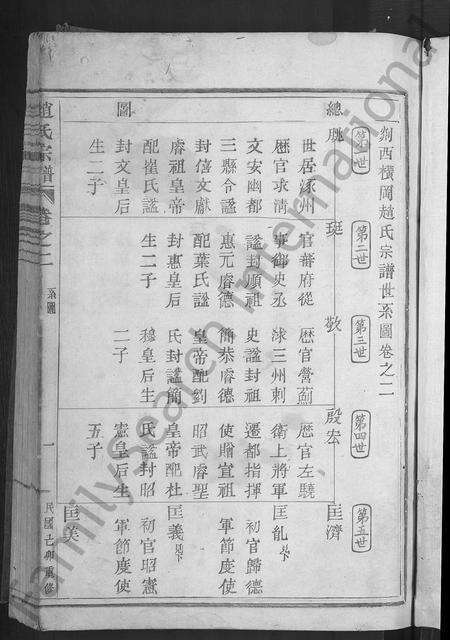 荊西橫岡趙氏宗譜世系圖卷之二
總圖
第一世
第二世
第三世
第四世
第五世
朓
世居涿州
歷官永清
文安幽都
三縣令謚
封僖文獻
睿祖皇帝
配崔氏謚
封文皇后
生二子
珽
官蕃府從
事御史丞
謚封順祖
惠元睿德
配葉氏謚
封惠皇后
生二子
敬
歷官營薊
涿三州刺
史謚封祖
簡恭睿德
皇帝配劉
氏封謚簡
穆皇后生
二子
殷宏
歷官左驍
衛上將軍
遷都指揮
使贈宣祖
昭武睿聖
皇帝配杜
氏謚封昭
憲皇后生
五子
匡濟
匡胤 見下
初官歸德
軍節度使
匡義 見下
初官昭憲
軍節度使
匡美
趙氏宗譜
卷之二
系圖
一
民國己卯重修
FamilySearch International